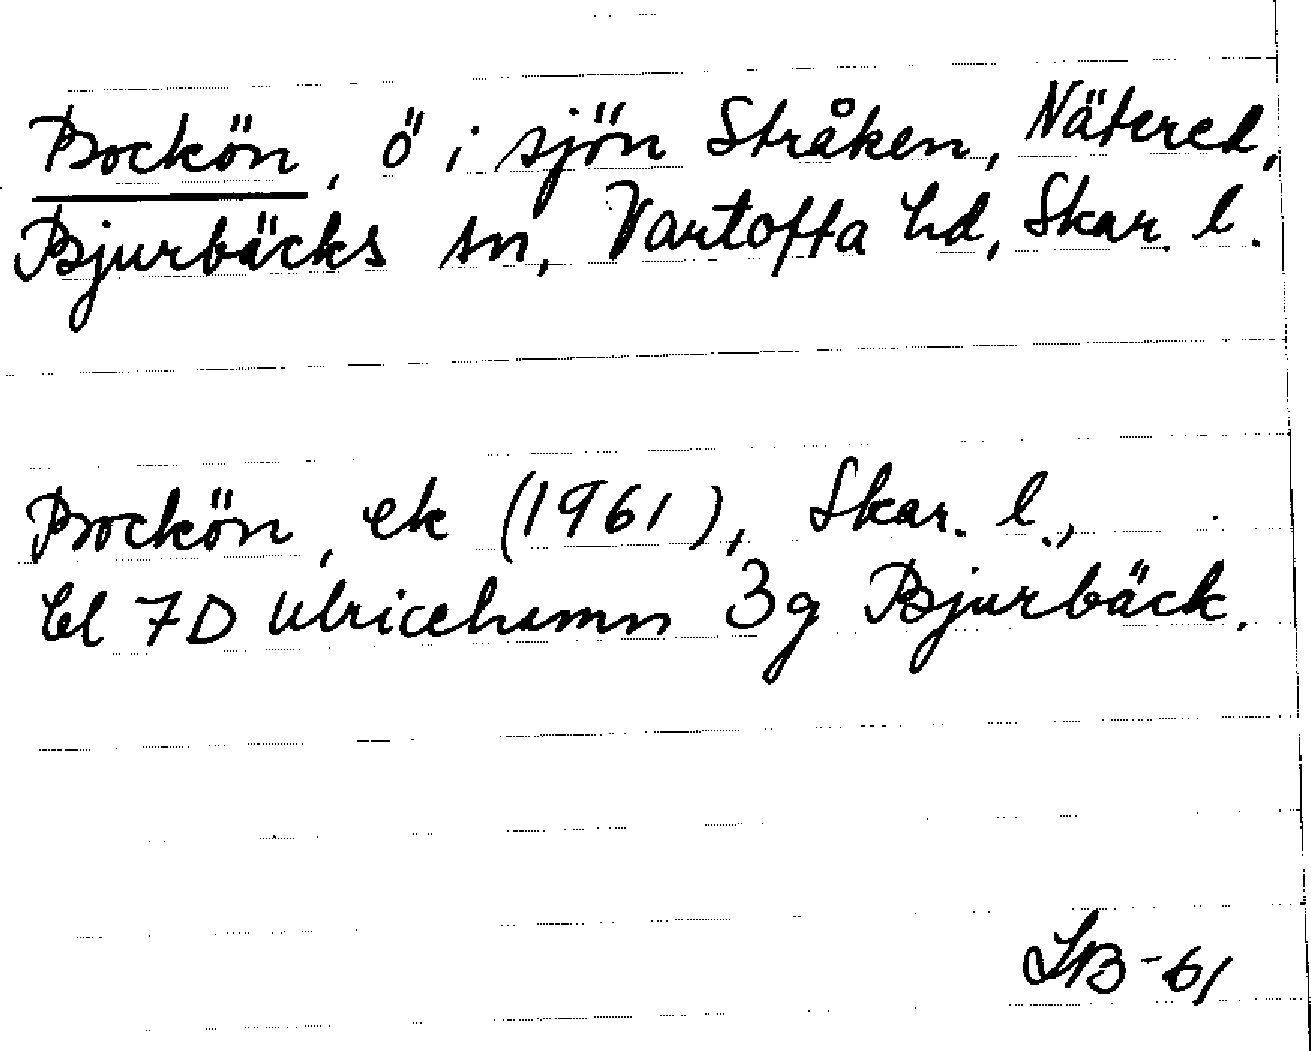 Bockön, ö i sjön Stråken, Nätered,
Bjurbäcks sn, Vartofta hd, Skar. l.
Bockön, ek (1961), Skar. l.,
bl 7D Ulricehamn 3g Bjurbäck.
SB-61